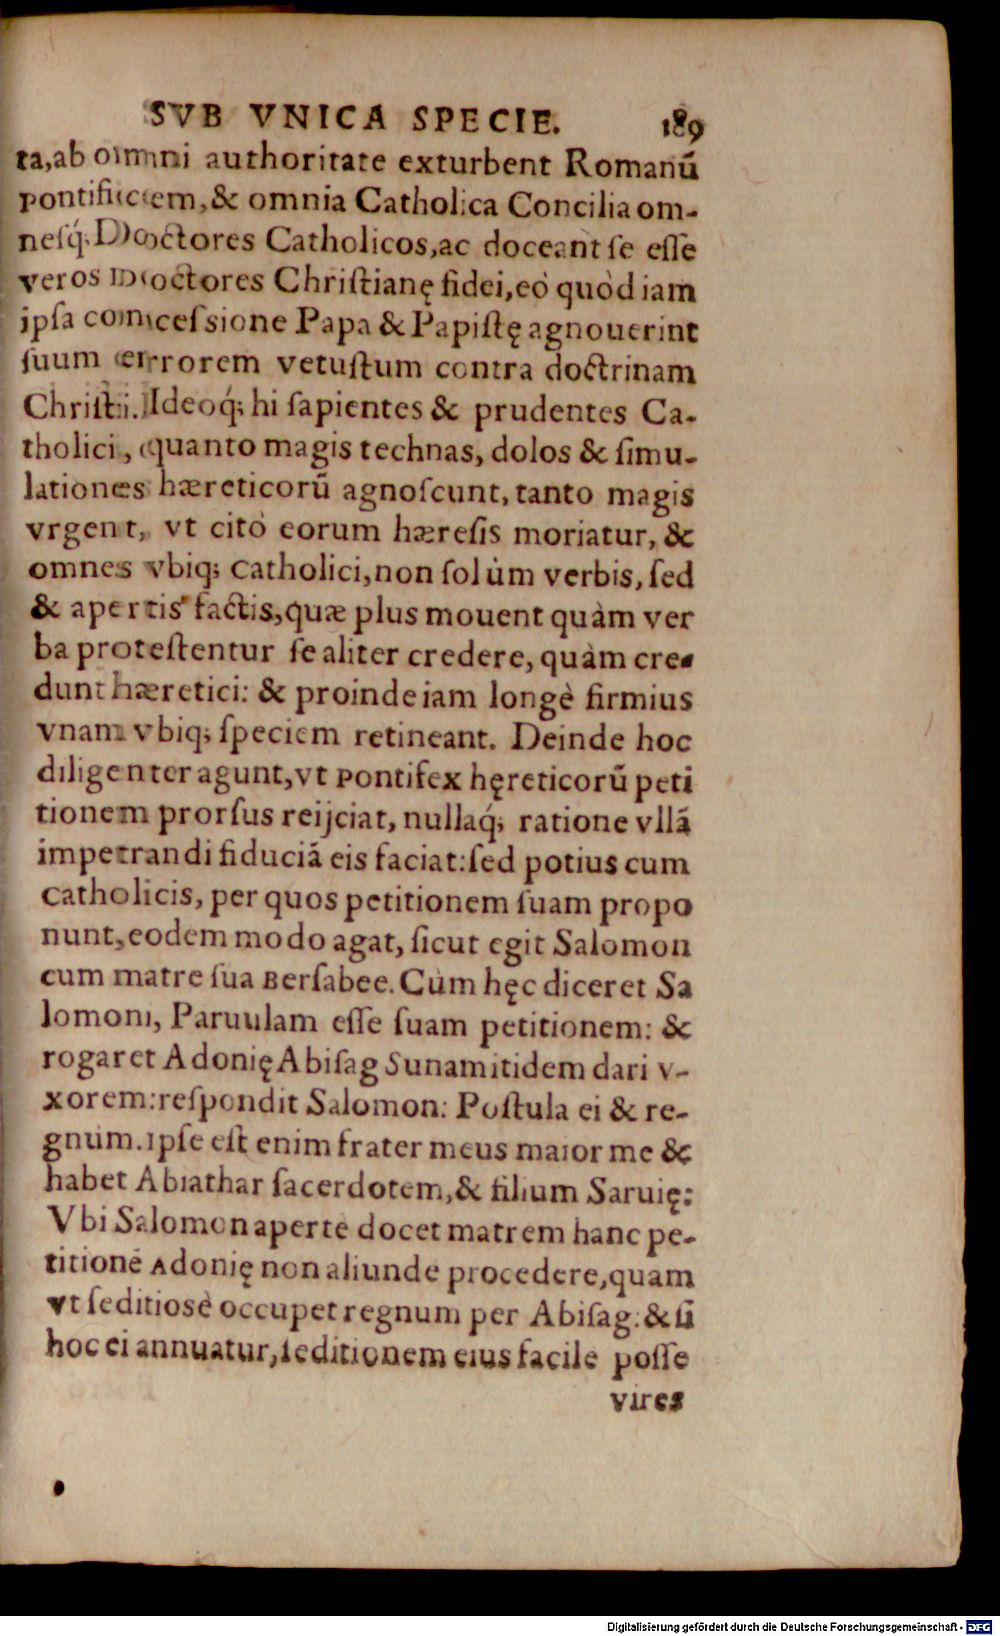 SVB VNICA SPECIE. 189
ta,ab omni authoritate exturbent Romanũ
pontificem,& omnia Catholica Concilia om-
nesq́; Doctores Catholicos,ac doceant se esse
veros Doctores Christianę fidei,eò quòd iam
ipsa concessione Papa & Papistę agnouerint
suum errorem vetustum contra doctrinam
Christi. Ideoq́; hi sapientes & prudentes Ca-
tholici, quanto magis technas, dolos & simu-
lationes hæreticorũ agnoscunt, tanto magis
vrgent, vt citò eorum hæresis moriatur, &
omnes vbiq; catholici,non solùm verbis, sed
& apertis factis,quæ plus mouent quàm ver
ba protestentur se aliter credere, quàm cre-
dunt hæretici: & proinde iam longè firmius
vnam vbiq; speciem retineant. Deinde hoc
diligenter agunt,vt pontifex hęreticorũ peti
tionem prorsus reijciat, nullaq́; ratione vllã
impetrandi fiduciã eis faciat:sed potius cum
catholicis, per quos petitionem suam propo
nunt,eodem modo agat, sicut egit Salomon
cum matre sua Bersabee. Cùm hęc diceret Sa
lomoni, Paruulam esse suam petitionem: &
rogaret Adonię Abisag Sunamitidem dari v-
xorem:respondit Salomon: Postula ei & re-
gnum.ipse est enim frater meus maior me &
habet Abiathar sacerdotem,& filium Saruię:
Vbi Salomon apertè docet matrem hanc pe-
titionē Adonię non aliunde procedere,quam
vt seditiosè occupet regnum per Abisag:& si
hoc ei annuatur,seditionem eius facile posse
vires
Digitalisierung gefördert durch die Deutsche Forschungsgemeinschaft - DFG